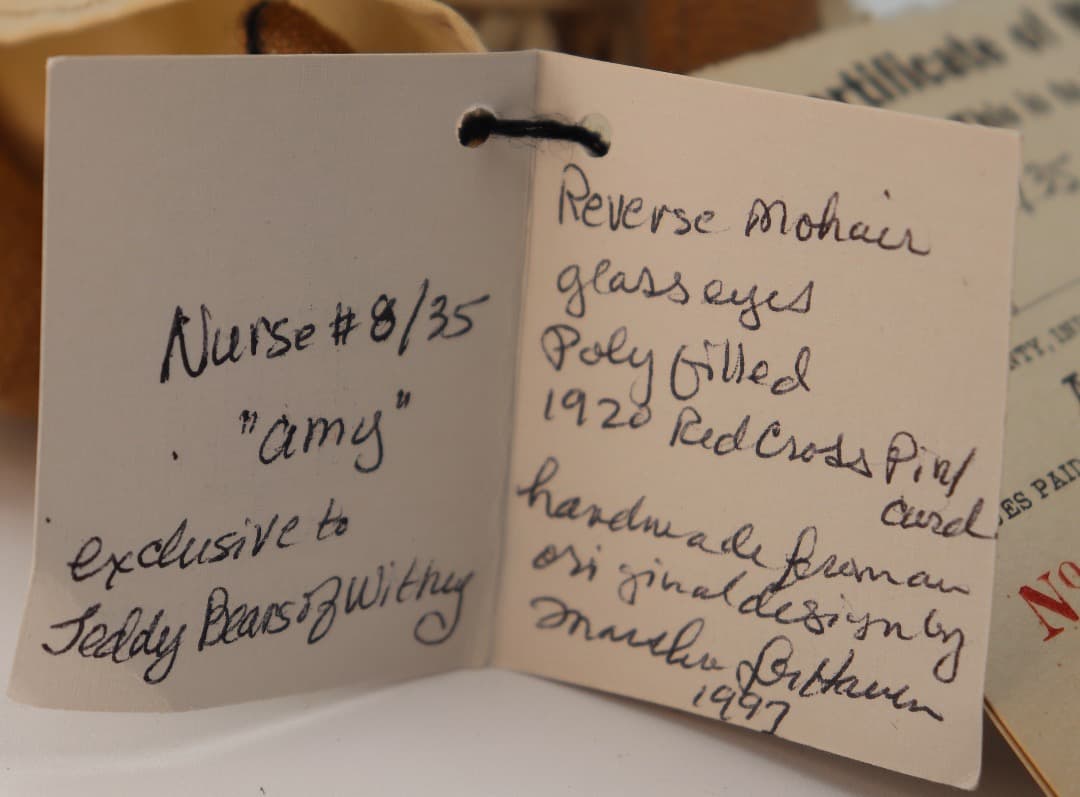 Nurse # 8/35
"Amy"
exclusive to
Teddy Bears of Witney
Reverse Mohair
glass eyes
Poly filled
1920 Red Cross Pin/
card
handmade from an
original design by
Marsha DeHaven
1997
rtificate of
This is to
/35
NTY, INT
ES PAID
No